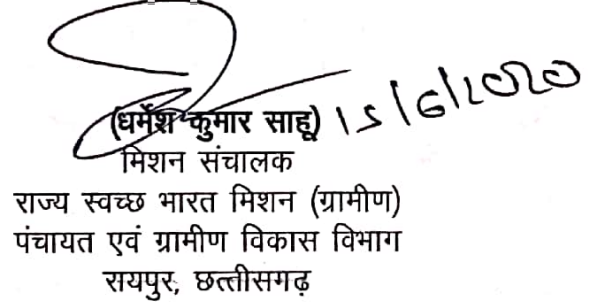 (धर्मेश कुमार साहू) 15/6/2020
मिशन संचालक
राज्य स्वच्छ भारत मिशन (ग्रामीण)
पंचायत एवं ग्रामीण विकास विभाग
रायपुर, छत्तीसगढ़